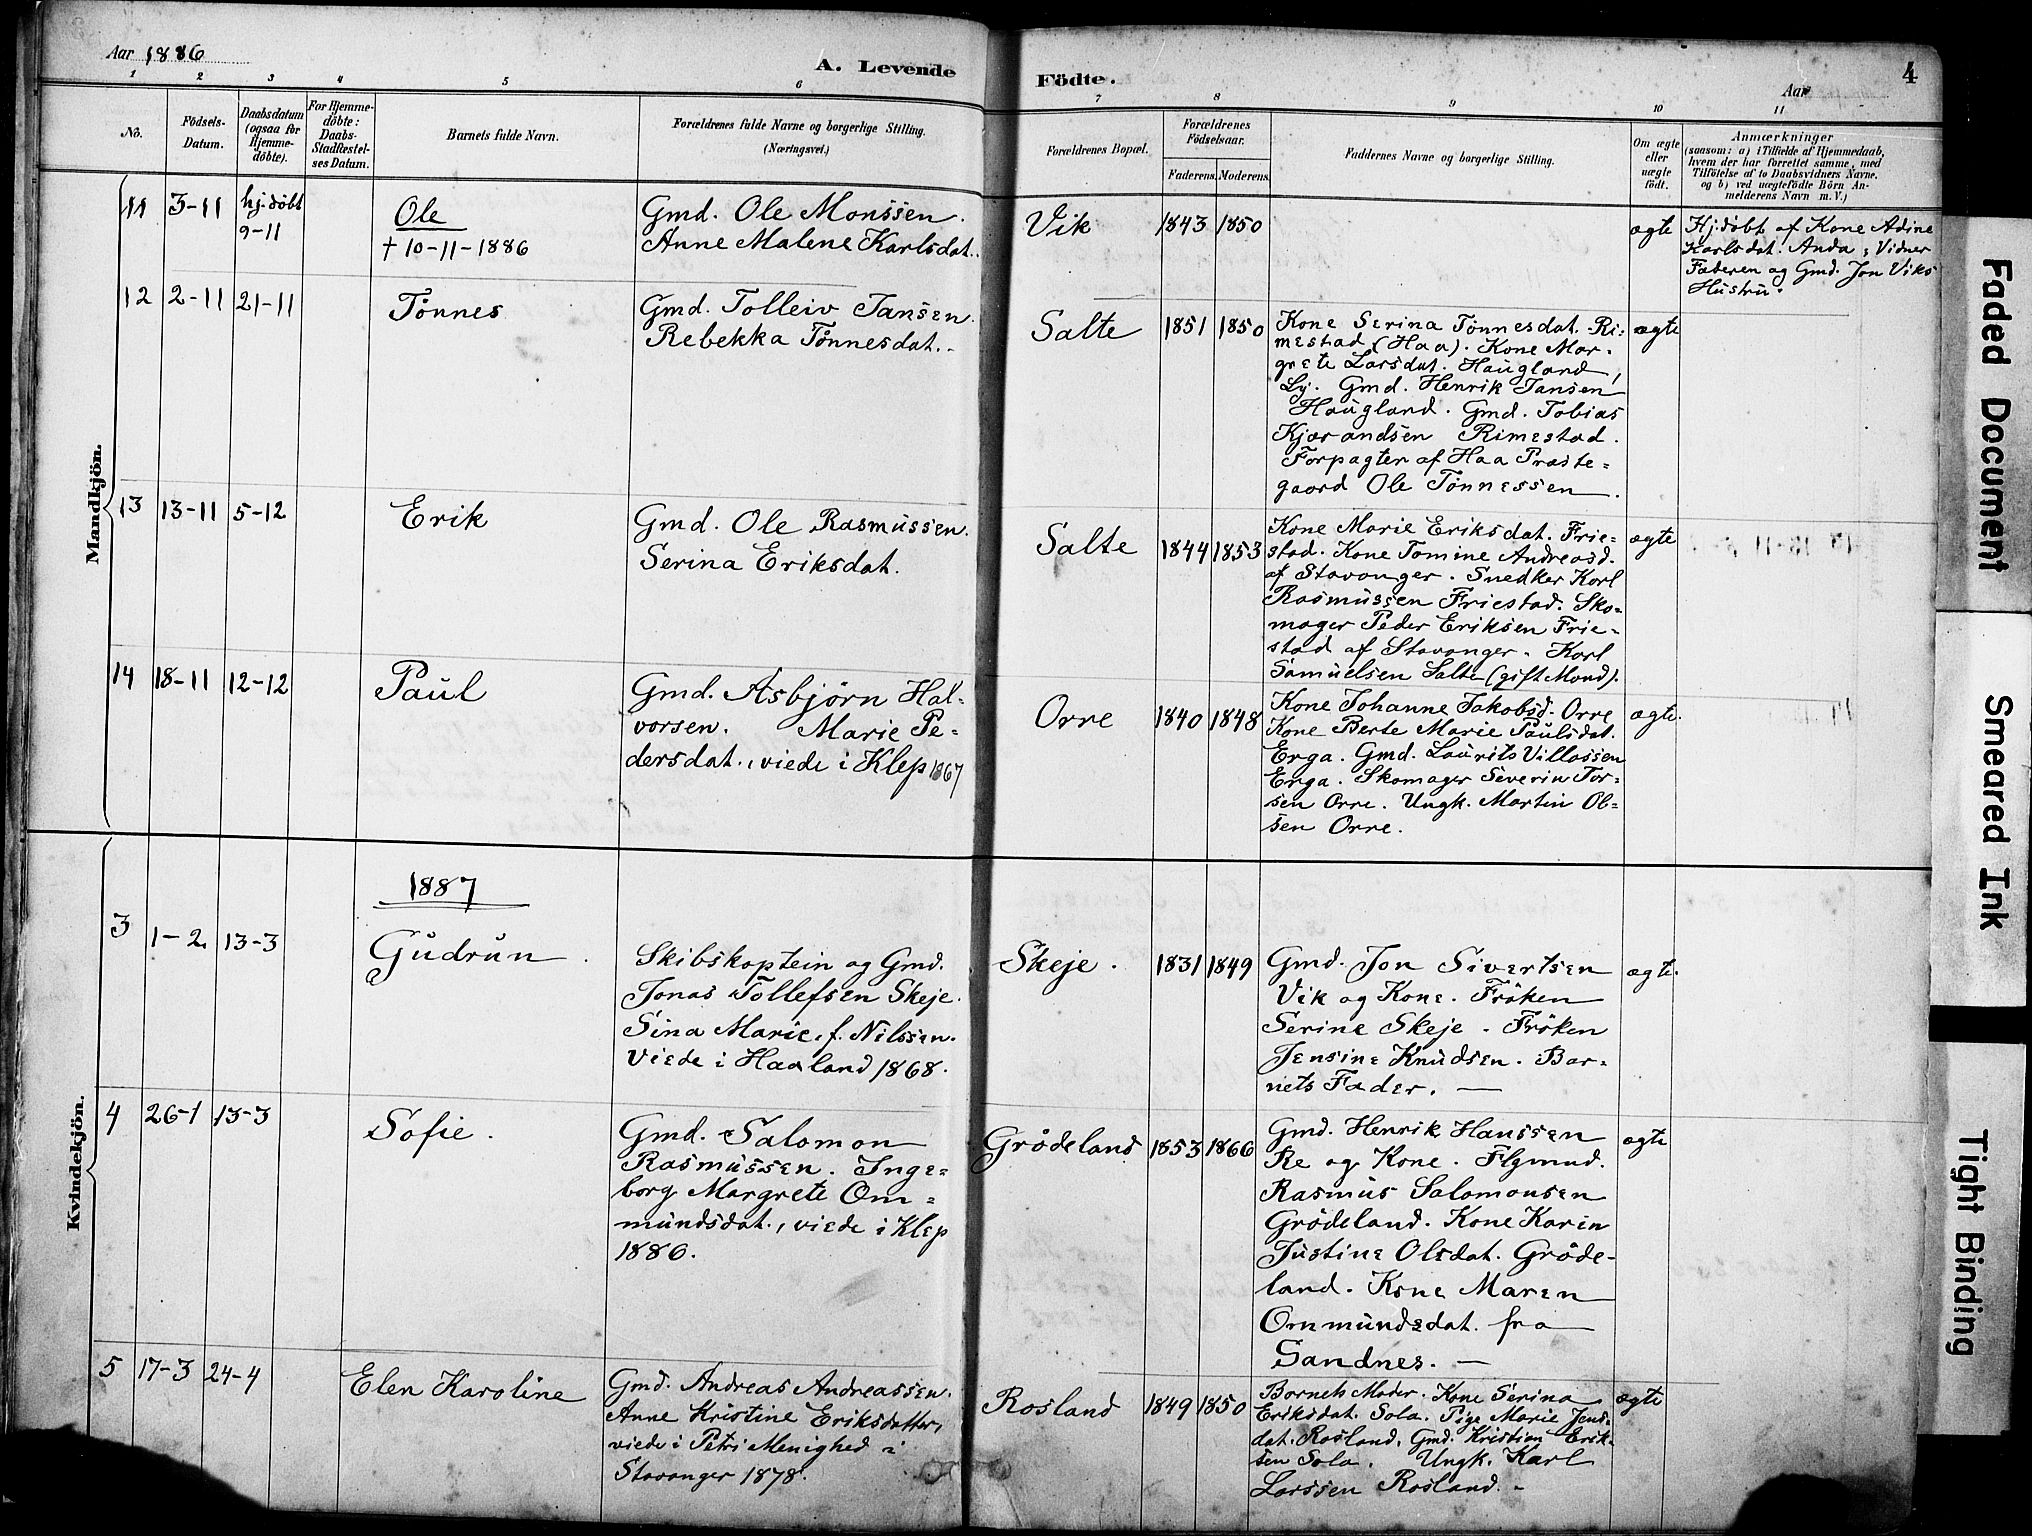 Aar 1886
A. Levende
Födte.
Aar
4
1 2 3 4 5 6 7 8 9 10 11
No.
Födsels-
Datum.
Daabsdatum
(ogsaa for
Hjemme-
döbte).
For Hjemme-
döbte:
Daabs-
Stadfæstel-
ses Datum.
Barnets fulde Navn.
Forældrenes fulde Navne og borgerlige Stilling.
(Næringsvei.)
Forældrenes Bopæl.
Forældrenes
Födselsaar.
Faderens. Moderens.
Faddernes Navne og borgerlige Stilling.
Om ægte
eller
uægte
födt.
Anmærkninger
(saasom: a) i Tilfælde af Hjemmedaab,
hvem der har forrettet samme, med
Tilföielse af to Daabsvidners Navne.
og b) ved uægtefödte Börn An-
melderens Navn m.V.)
Mandkjön.
11
3-11
hj. döbt
9-11
Ole
† 10-11-1886
Gmd. Ole Monssen.
Anne Malene Karlsdat.
Vik
1843
1850
ægte
Hj. döbt af Kone Adine
Karlsdat. Anda, Vidner
Faderen og Gmd. Jon Viks
Hustru.
12
2-11
21-11
Tönnes
Gmd. Tolleiv Jansen.
Rebekka Tönnesdat.
Salte
1851
1850
Kone Serina Tönnesdat. Ri-
mestad (Haa). Kone Mar-
grete Larsdat. Haugland,
Ly. Gmd. Henrik Jansen
Haugland. Gmd. Tobias
Kjærandsen Rimestad.
Forpagter af Haa Præste-
gaard Ole Tönnessen.
ægte
13
13-11
5-12
Erik
Gmd. Ole Rasmussen.
Serina Eriksdat.
Salte
1844
1853
Kone Marie Eriksdat. Frie-
stad. Kone Tomine Andreasd.
af Stavanger. Snedker Karl
Rasmussen Friestad. Sko-
mager Peder Eriksen Frie-
stad af Stavanger. Karl
Samuelsen Salte (gift Mand).
ægte
14
18-11
12-12
Paul
Gmd. Asbjörn Hal-
vorsen. Marie Pe-
dersdat., viede i Klep 1867
Orre
1840
1848
Kone Johanne Jakobsd. Orre
Kone Berte Marie Paulsdat.
Erga. Gmd. Laurits Villassen
Erga. Skomager Severin Tor-
sen Orre. Ungk. Martin Ol-
sen Orre.
ægte.
Kvindekjön.
1887
3
1-2
13-3
Gudrun.
Skibskaptein og Gmd.
Jonas Tollefsen Skeje.
Sina Marie, f. Nilssen.
Viede i Haaland 1868.
Skeje.
1831
1849
Gmd. Jon Sivertsen
Vik og Kone. Fröken
Serine Skeje. Fröken
Jensine Knudsen. Bar-
nets Fader.
ægte.
4
26-1
13-3
Sofie.
Gmd. Salomon
Rasmussen. Inge-
borg Margrete Om-
mundsdat., viede i Klep
1886.
Grödeland
1853
1866
Gmd. Henrik Hanssen
Re og Kone. Flgmnd.
Rasmus Salomonsen
Grödeland. Kone Karin
Justine Olsdat. Gröde-
land. Kone Maren
Ommundsdat. fra
Sandnes.
ægte
5
17-3
24-4
Elen Karoline
Gmd. Andreas Andreassen.
Anne Kristine Eriksdatter,
viede i Petri Menighed i
Stavanger 1878.
Rosland
1849
1850
Barnets Moder. Kone Serina
Eriksdat. Sola. Pige Marie Jens-
dat. Rosland. Gmd. Kristian Erik-
sen Sola. Ungk. Karl
Larssen Rosland.
ægte
Faded Document
Smeared Ink
Tight Binding